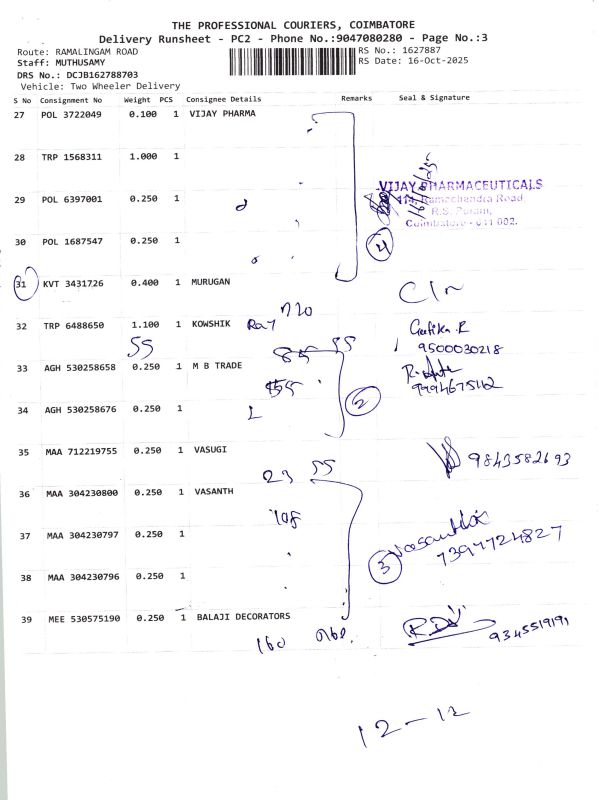 THE PROFESSIONAL COURIERS, COIMBATORE
Delivery Runsheet - PC2 - Phone No.:9047080280 - Page No.:3
Route: RAMALINGAM ROAD
RS No.: 1627887
Staff: MUTHUSAMY
RS Date: 16-Oct-2025
DRS No.: DCJB162788703
Vehicle: Two Wheeler Delivery
S No Consignment No Weight PCS Consignee Details Remarks Seal & Signature
27 POL 3722049 0.100 1 VIJAY PHARMA
28 TRP 1568311 1.000 1
VIJAY PHARMACEUTICALS
29 POL 6397001 0.250 1
414, Ramachandra Road,
R.S. Puram,
Coimbatore - 641 002.
30 POL 1687547 0.250 1
4
31 KVT 3431726 0.400 1 MURUGAN
32 TRP 6488650 1.100 1 KOWSHIK
9500030218
55
85 55
33 AGH 530258658 0.250 1 M B TRADE
2
34 AGH 530258676 0.250 1
35 MAA 712219755 0.250 1 VASUGI
9843582693
23 55
36 MAA 304230800 0.250 1 VASANTH
108
37 MAA 304230797 0.250 1
7394724827
3
38 MAA 304230796 0.250 1
39 MEE 530575190 0.250 1 BALAJI DECORATORS
9345519191
160
12-12